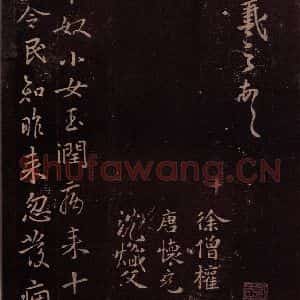 羲之
徐僧權
唐懷充
沈熾文
奴小女玉潤病來十
令民知昨來忽發痼
Shufawang.CN